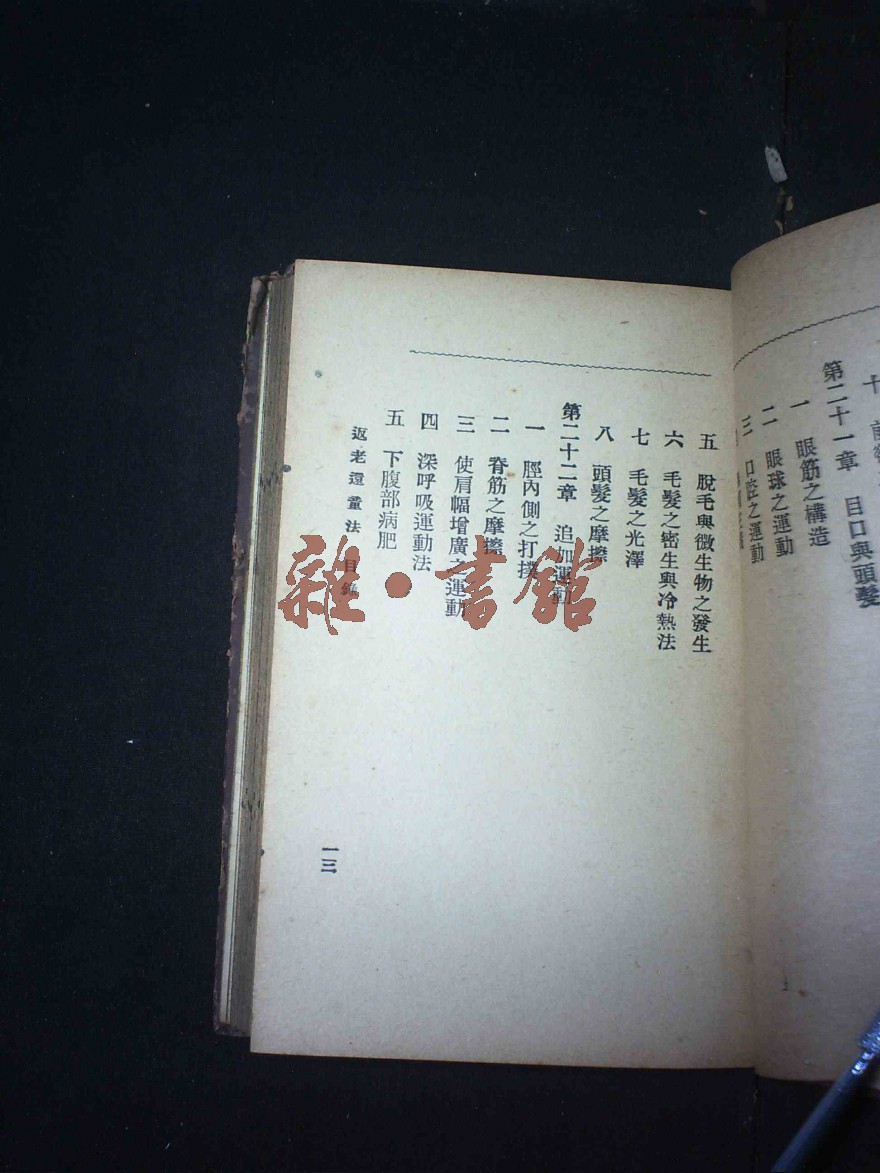 第二十一章　目口與頭髮
一　眼筋之構造
二　眼球之運動
三　口腔之運動
五　脫毛與微生物之發生
六　毛髮之密生與冷熱法
七　毛髮之光澤
八　頭髮之摩擦
第二十二章　追加運動
一　脛內側之打撲
二　脊筋之摩擦
三　使肩幅增廣之運動
四　深呼吸運動法
五　下腹部病肥
返老還童法　目錄
一三
雜·書館